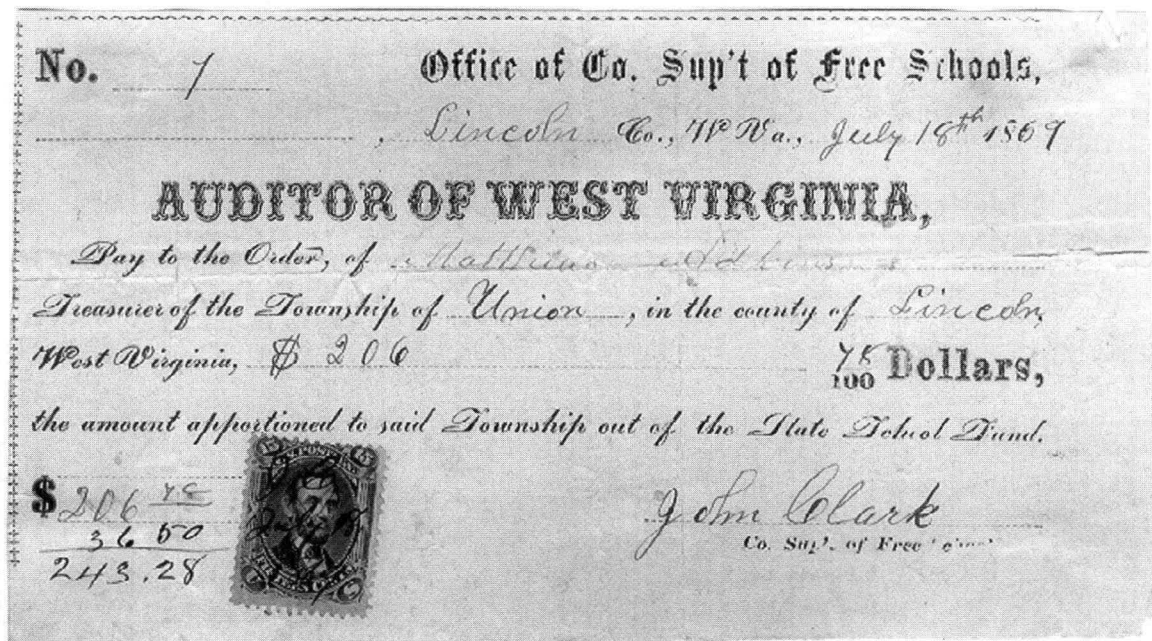 No. 7 Office of Co. Sup't of Free Schools,
, Lincoln Co., W Va., July 18th 1869
AUDITOR OF WEST VIRGINIA,
Pay to the Order, of Matthew Adkins
Treasurer of the Township of Union, in the county of Lincoln,
West Virginia, $ 206 78/100 Dollars,
the amount apportioned to said Township out of the State School Fund.
$ 206 78
36 50
243.28
John Clark
Co. Sup't. of Free